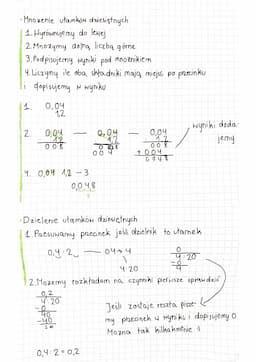 ·Mnożenie ułamków dziesiętnych
1. Wyrównujemy do lewej
2. Mnożymy dolną liczbą górne
3. Podpisujemy wyniki pod mnożnikiem
4. Liczymy ile oba składniki mają miejsc po przecinku
i dopisujemy w wyniku
1. 0,04
1,2
2. 0,04 — 0,04 — 0,04
1,2 1,2 1,2
008 008 008
004 +004
0048
wyniki doda-
jemy
4. 0,04 1,2 - 3
0,048
·Dzielenie ułamków dziesiętnych
1. Przesuwamy przecinek jeśli dzielnik to ułamek
0,4:2 — 04→4
4:20
0
4:20
-0
4
2. Możemy rozkładam na czynniki pierwsze sprawdzić
0,2
4:20
-0
40
-40
Jeśli zostaje reszta pisze-
my przecinek w wyniku i dopisujemy 0
Można tak kilkukrotnie :)
0,4:2=0,2